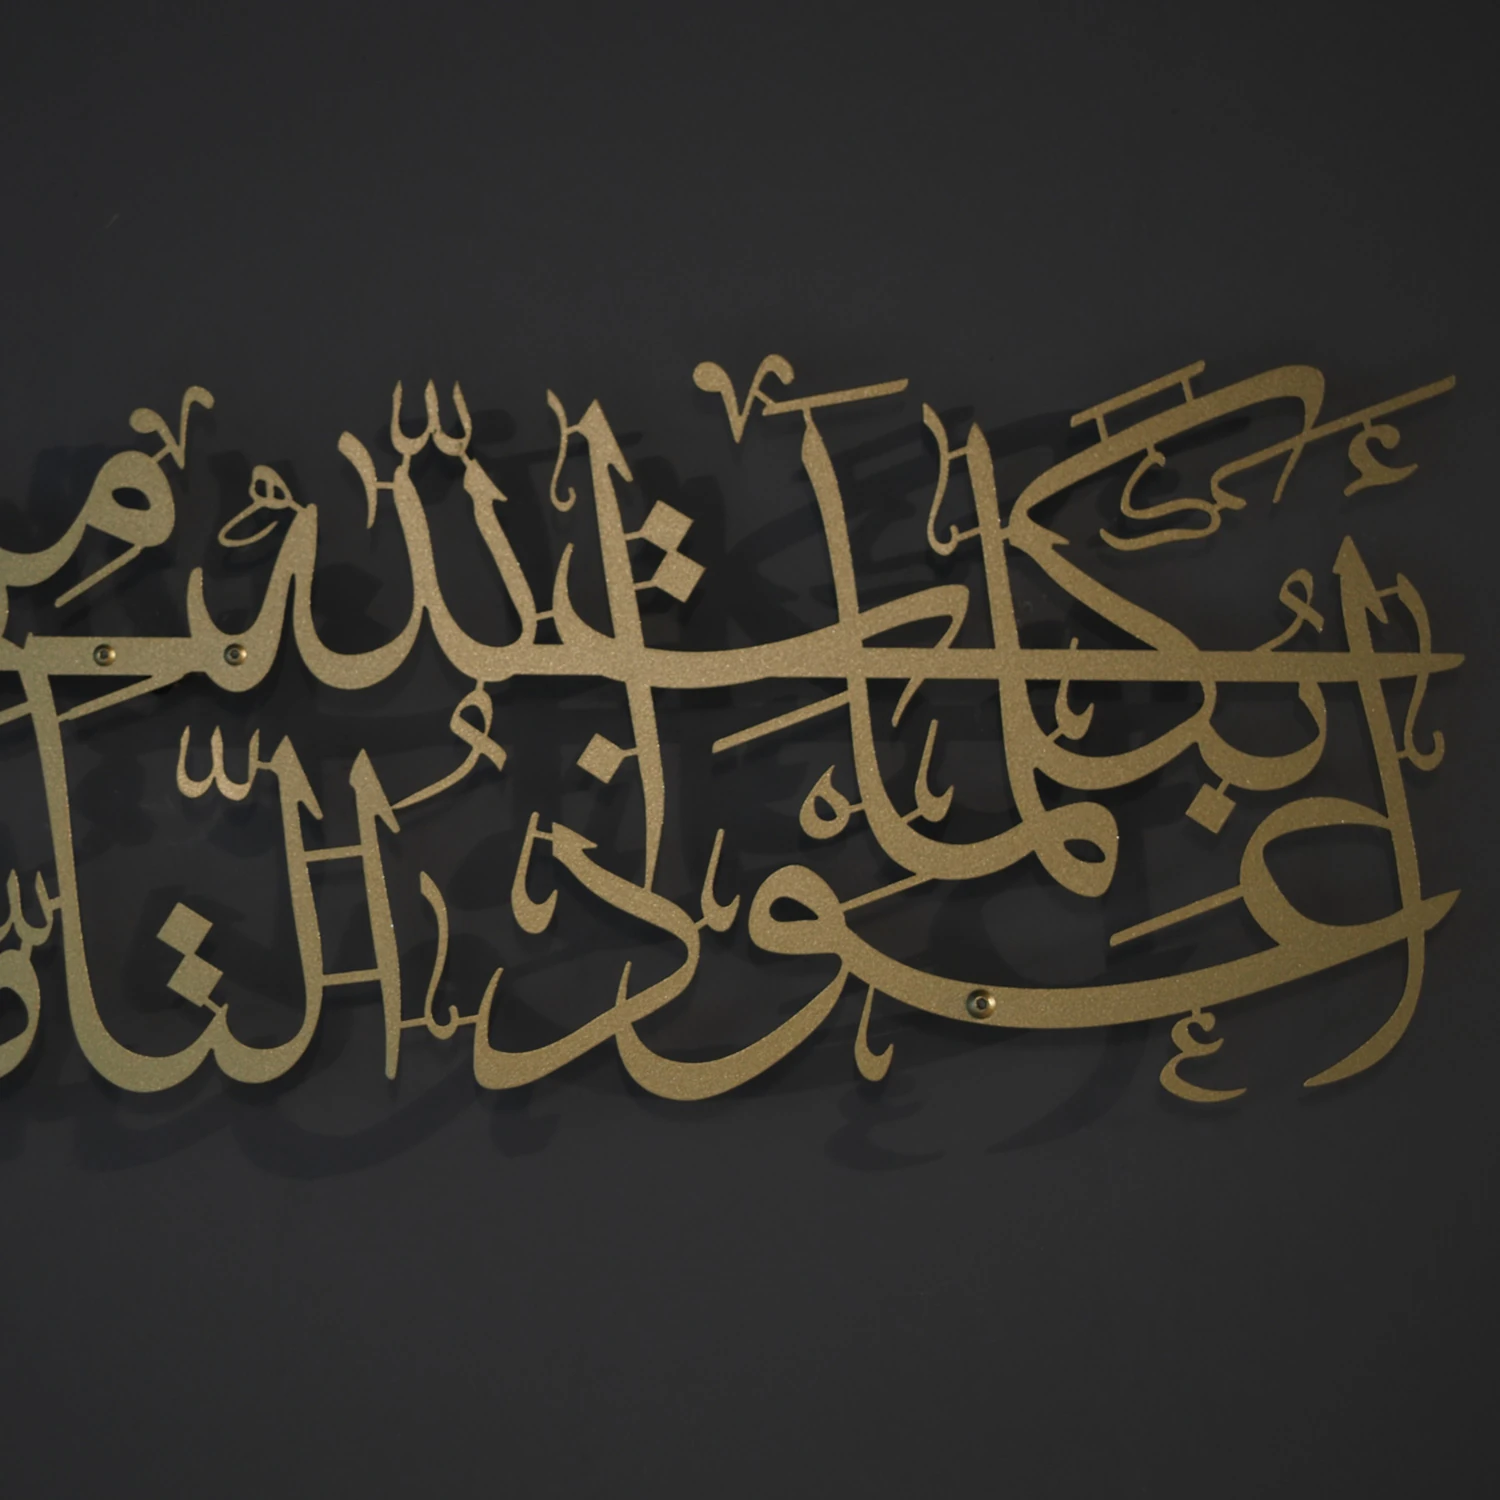 أَعُوذُ بِكَلِمَاتِ اللّٰهِ التَّامَّاتِ